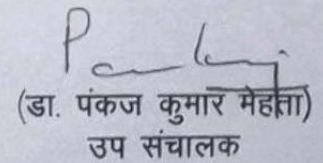 (डा. पंकज कुमार मेहता)
उप संचालक